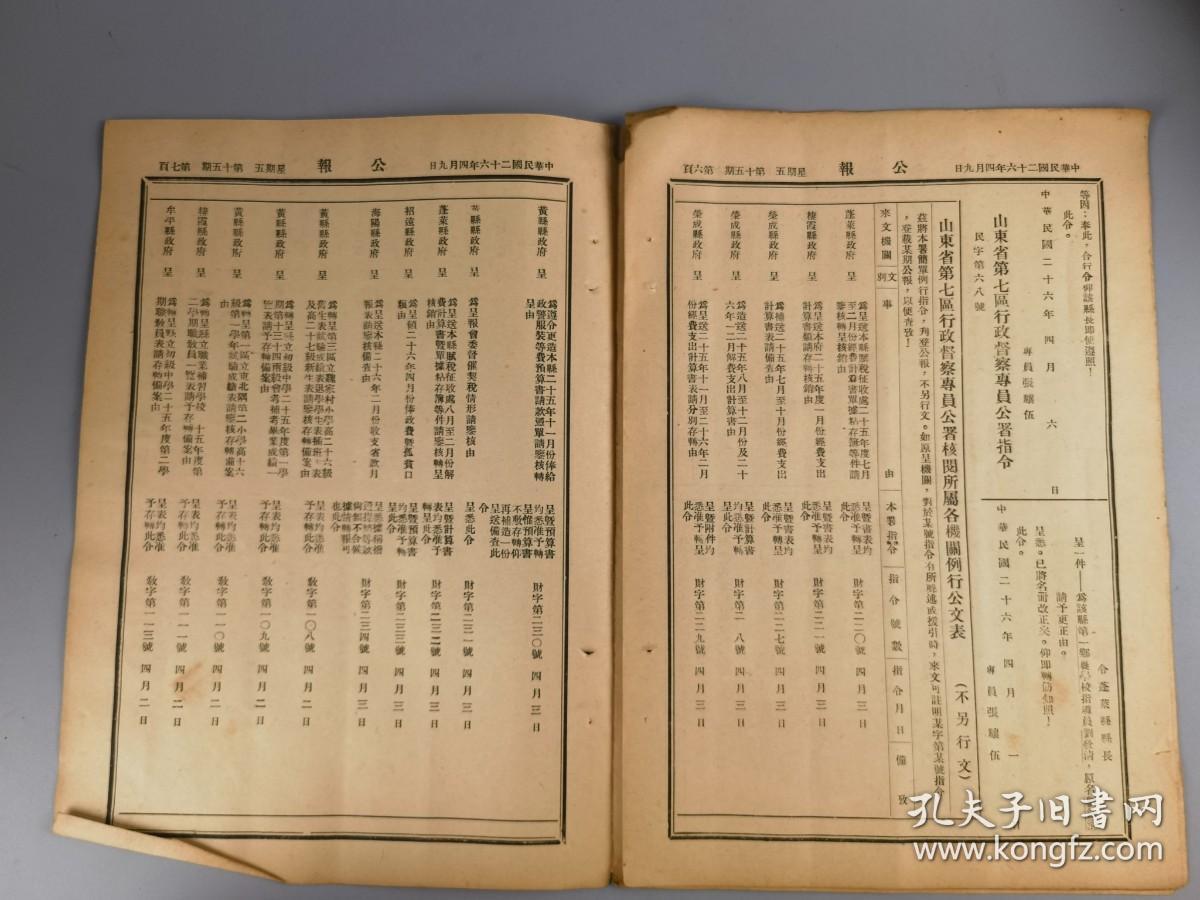 中華民國二十六年四月九日
星期五
第十五期
第六頁
公報
等因；奉此，合行令仰該縣長即便遵照！
此令。
中華民國二十六年四月六日
專員張驤伍
山東省第七區行政督察專員公署指令
民字第六八號
令蓬萊縣縣長
請予更正由。
呈悉。已將名冊改正矣。仰即轉飭知照！
此令。
中華民國二十六年四月
專員張驤伍
山東省第七區行政督察專員公署核閱所屬各機關例行公文表
（不另行文）
茲將本署簡單例行指令，列登公報，不另行文。如原呈機關，對於某號指令有所陳述或援引時，來文可註明某字第某號指令
，登載某期公報，以便查考！
來文機關
文別
事由
本署指令
指令號數
指令月日
備考
蓬萊縣政府
呈
為呈送本縣賦稅征收處二十五年度七月
至二月份經費計算書單據粘存簿等件請
鑒核轉呈核銷由
呈暨書表均
悉准予轉呈
此令
財字第二二〇號
四月三日
棲霞縣政府
呈
為呈送本府二十五年度一月份經費支出
計算書類請存轉核銷由
呈暨書表均
悉准予轉呈
此令
財字第二二一號
四月三日
榮成縣政府
呈
為補送二十五年七月至十月份經費支出
計算書表請備查由
呈暨書表均
悉准予轉呈
此令
財字第二二七號
四月三日
榮成縣政府
呈
為造送二十五年八月至十二月份及二十
六年一二月解費支出計算書由
呈暨計算書
均悉准予轉
呈此令
四月三日
榮成縣政府
呈
為呈送二十五年十一月至二十六年二月
份經費支出計算書表請分別存轉由
呈暨附件均
悉准予轉呈
此令
財字第二二九號
四月三日
中華民國二十六年四月九日
星期五
第十五期
第七頁
公報
黃縣縣政府
呈
為遵令更造本縣二十五年十一月份俸給
政警服裝等費預算書請款通單請鑒核轉
呈由
呈暨預算書
均悉准予轉
呈惟預算書
不敷存轉仰
再補造一份
呈送備查此
令
財字第二三〇號
四月三日
縣縣政府
呈
為呈報會委督催契稅情形請鑒核由
呈悉此令
財字第二三一號
四月三日
蓬萊縣政府
呈
為呈送本縣賦稅征收處八月至二月份解
費計算書暨單據粘存簿等件請鑒核轉呈
核銷由
呈暨計算書
表均悉准予
轉呈此令
財字第二三二號
四月三日
招遠縣政府
呈
為呈領二十六年四月份俸政費暨孤貧口
糧由
呈暨預算書
均悉准予轉
呈此令
財字第二三三號
四月三日
海陽縣政府
呈
為呈送本縣二十六年二月份收支省款月
報表請鑒核備查由
財字第二三四號
四月三日
黃縣縣政府
呈
為轉呈第三區立魏家村小學高二十六級
舊生表試驗成績表退學學生表插班生表
及高二十七級新生表請鑒核存轉備案由
呈表均悉准
予存轉此令
教字第一〇八號
四月二日
黃縣縣政府
呈
為轉呈縣立初級中學二十五年度第一學
期第十三十四兩級會考補考畢業成績一
覽表請予存轉備案由
呈表均悉准
予存轉此令
教字第一〇九號
四月二日
黃縣縣政府
呈
為轉呈第一區立東北隅第二小學高十六
級第一學年試驗成績表請鑒核存轉備案
由
呈表均悉准
予存轉此令
教字第一一〇號
四月二日
棲霞縣政府
呈
為轉呈縣立職業補習學校 十五年度第
二學期職教員一覽表請予存轉備案由
呈表均悉准
予存轉此令
教字第一一一號
四月二日
牟平縣政府
呈
為轉呈縣立初級中學二十五年度第二學
期職教員表請存轉備案由
呈表均悉准
予存轉此令
教字第一一三號
四月二日
孔夫子旧书网
www.kongfz.com